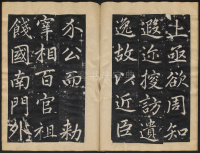 上亟欲周知
遐近搜訪遺
逸故以近臣
公而 勅
宰相百官祖
餞國南門外